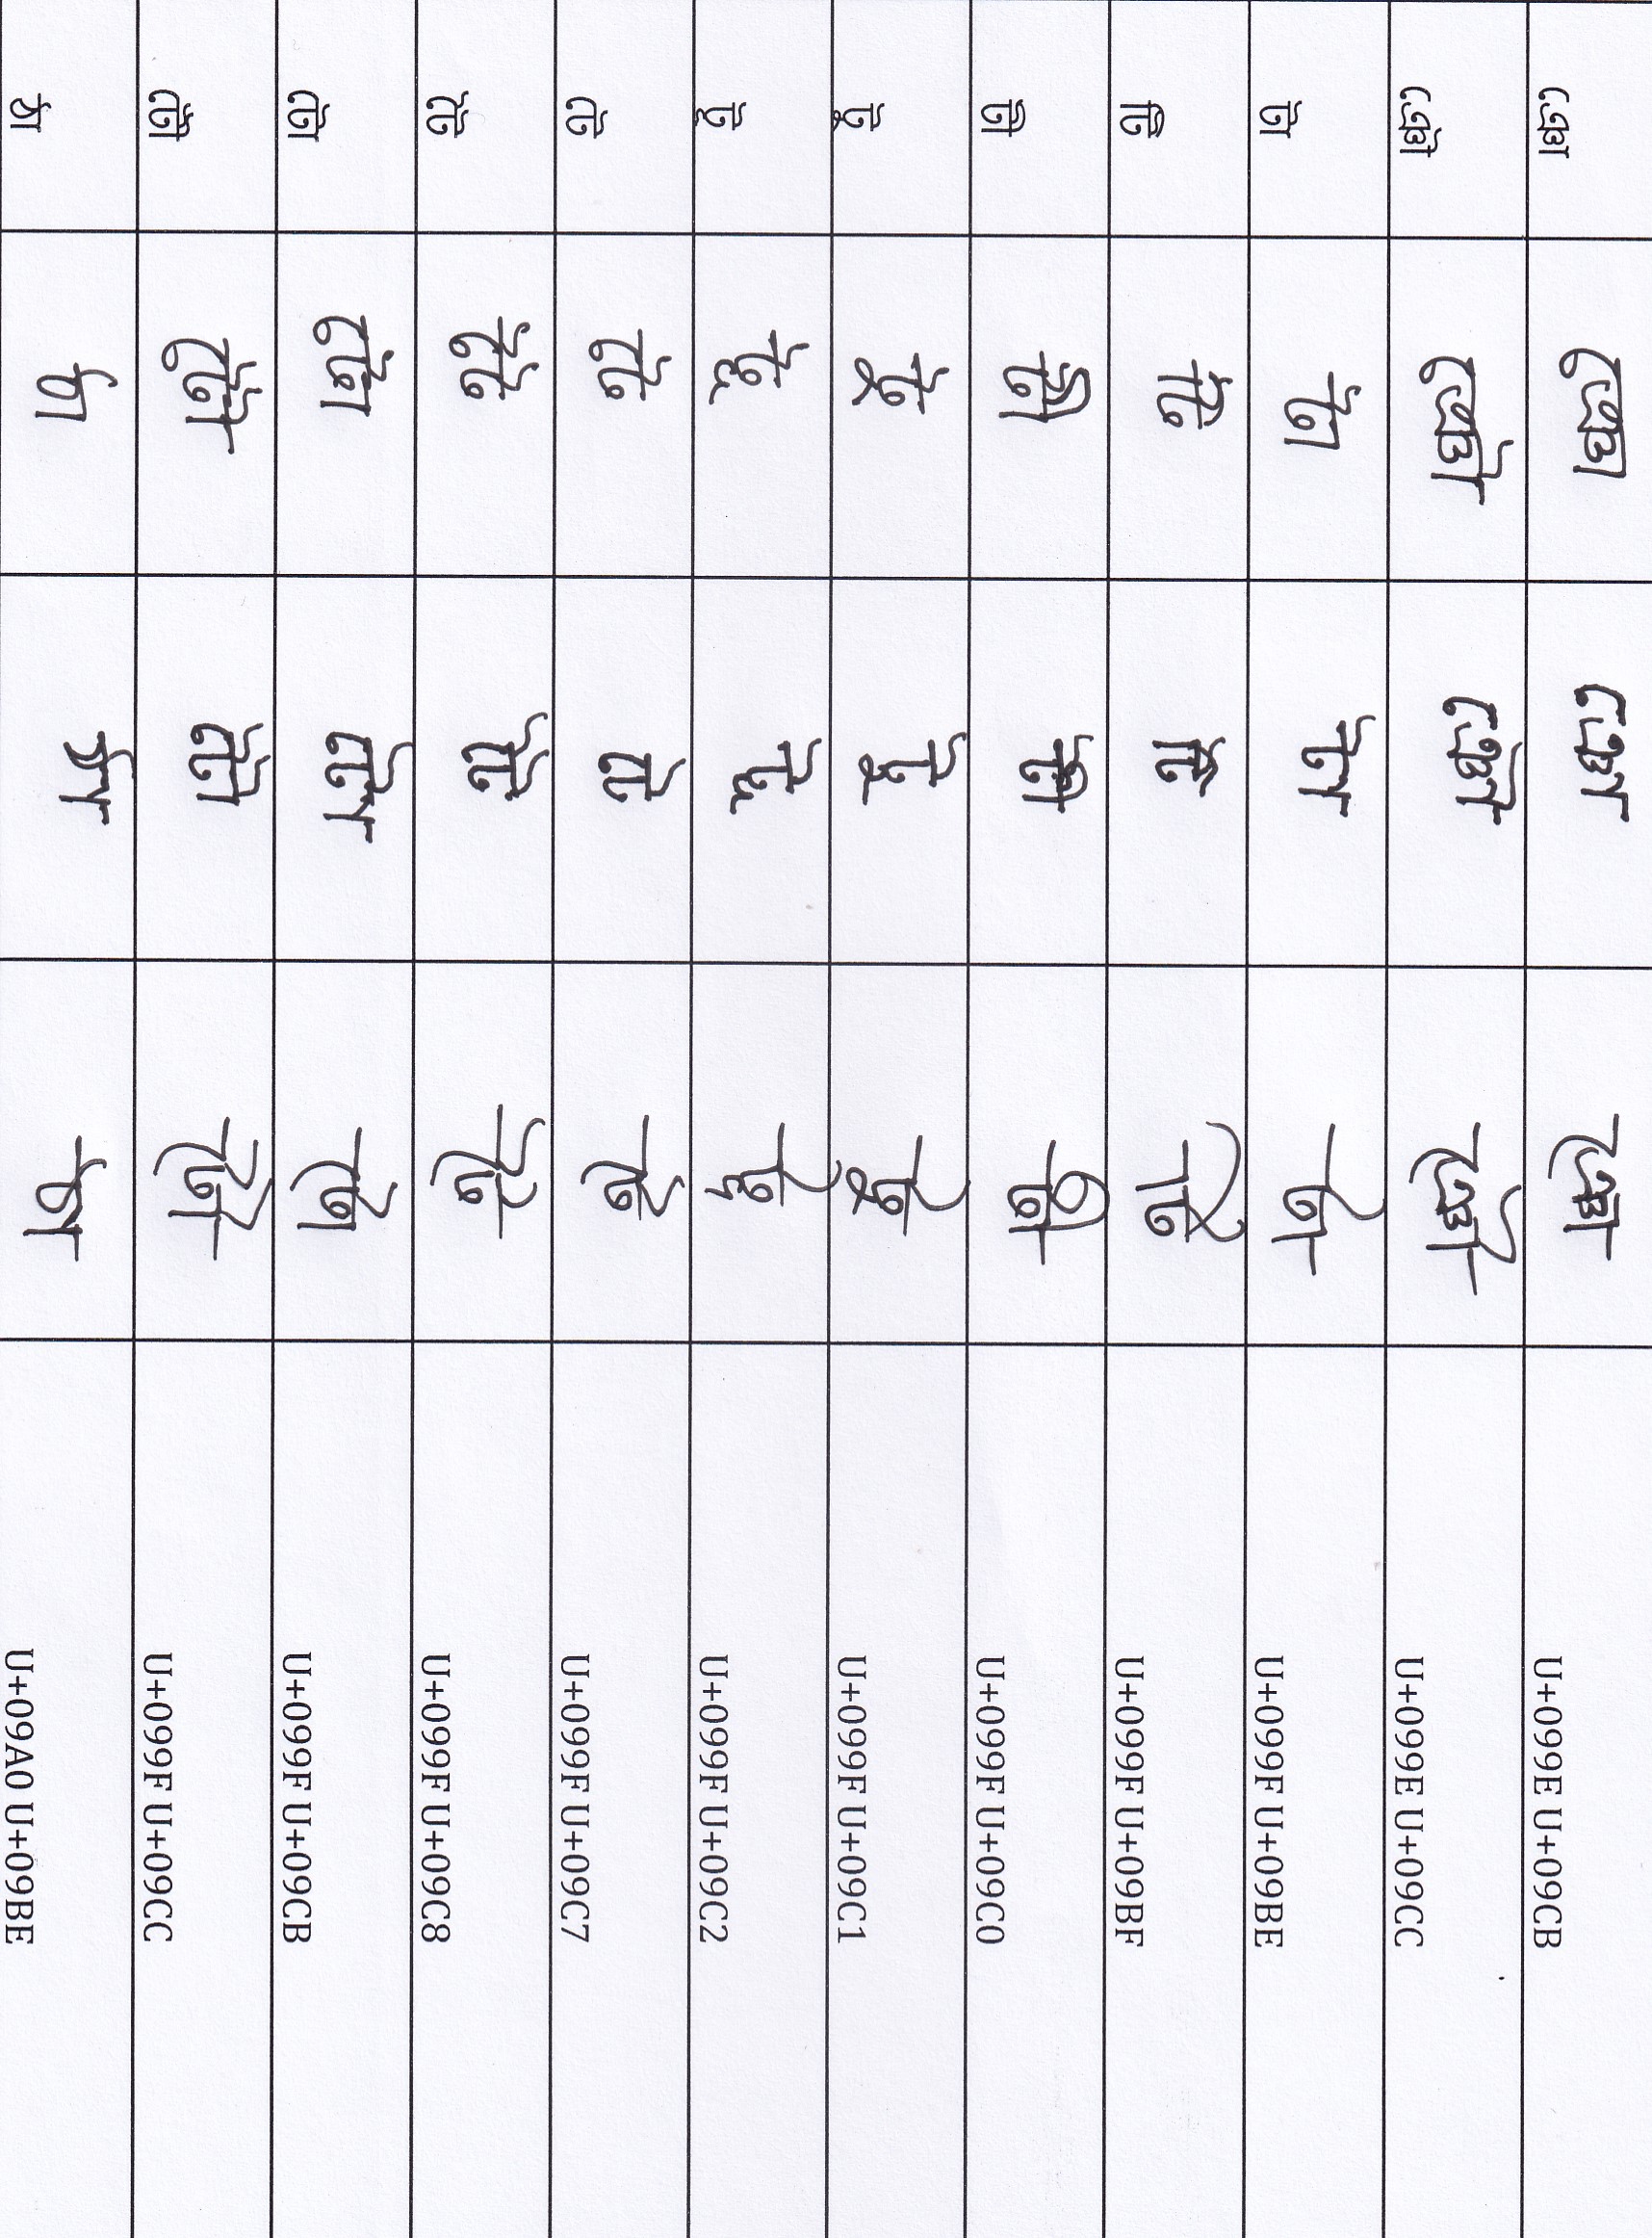 ঞো ঞো ঞো ঞো U+099E U+09CB
ঞৌ ঞৌ ঞৌ ঞৌ U+099E U+09CC
টা টা টা টা U+099F U+09BE
টি টি টি টি U+099F U+09BF
টী টী টী টী U+099F U+09C0
টু টু টু টু U+099F U+09C1
টূ টূ টূ টূ U+099F U+09C2
টে টে টে টে U+099F U+09C7
টৈ টৈ টৈ টৈ U+099F U+09C8
টো টো টো টো U+099F U+09CB
টৌ টৌ টৌ টৌ U+099F U+09CC
ঠা ঠা ঠা ঠা U+09A0 U+09BE